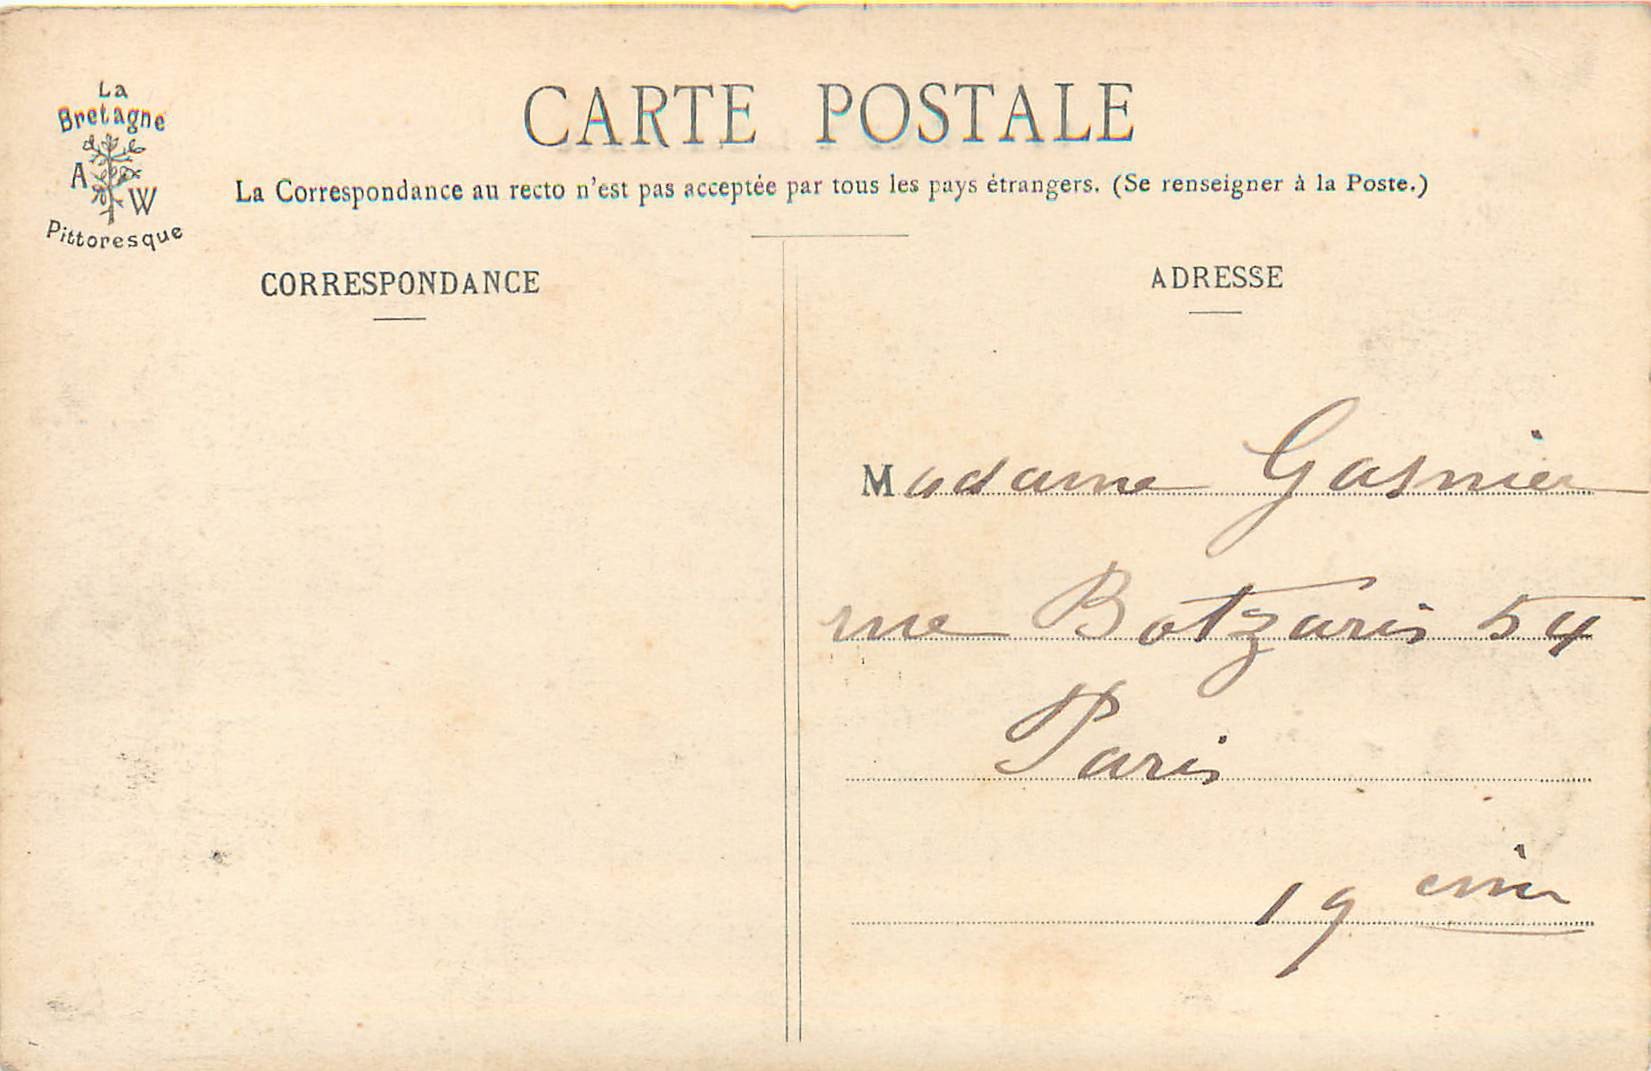 La
Bretagne
A W
Pittoresque
CARTE POSTALE
La Correspondance au recto n'est pas acceptée par tous les pays étrangers. (Se renseigner à la Poste.)
CORRESPONDANCE
ADRESSE
Madame Gasnier
rue Botzaris 54
Paris
19 eme